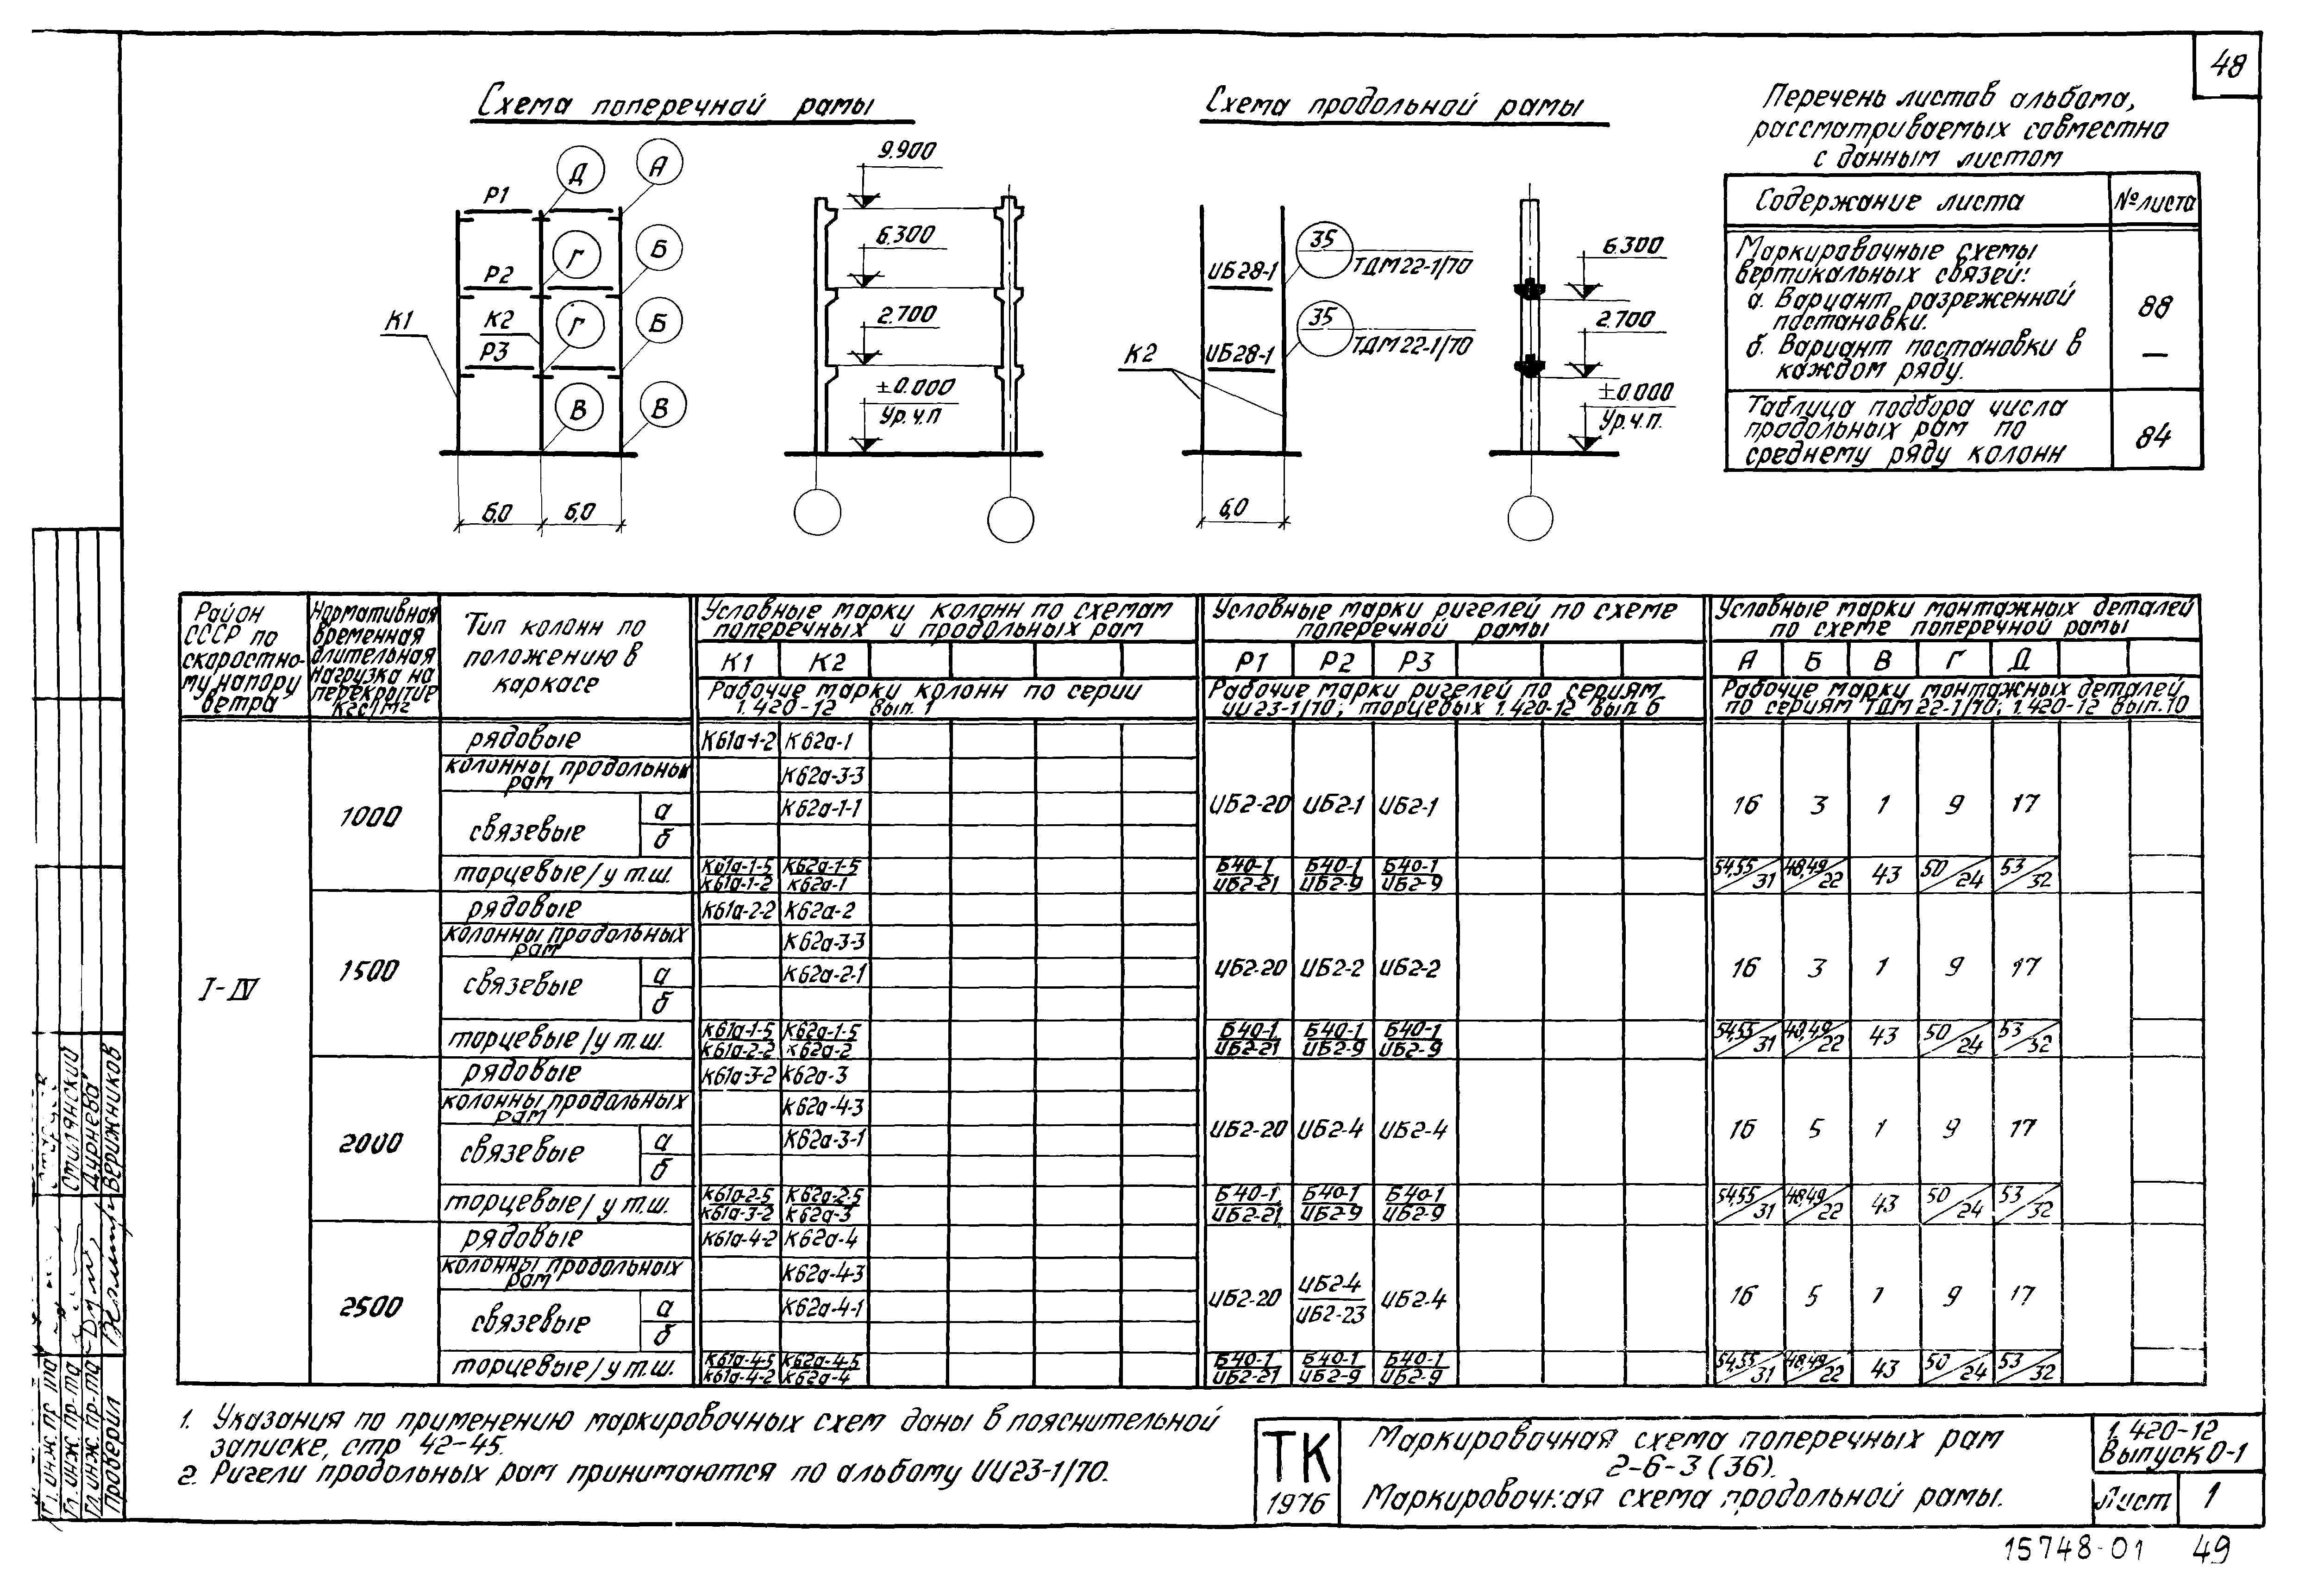 48
Схема поперечной рамы
Схема продольной рамы
Перечень листов альбома,
рассматриваемых совместно
с данным листом
Содержание листа
№ листа
Маркировочные схемы
вертикальных связей:
а. Вариант разреженной
постановки.
88
б. Вариант постановки в
каждом ряду.
—
Таблица подбора числа
продольных рам по
среднему ряду колонн
84
Д
А
Р1
Г
Б
Р2
К1
К2
Г
Б
Р3
В
В
6,0
6,0
9.900
6.300
2.700
±0.000
Ур.ч.п
35
ИБ28-1
ТДМ22-1/70
35
ИБ28-1
ТДМ22-1/70
К2
6,0
6.300
2.700
±0.000
Ур.ч.п.
Район
СССР по
скоростно-
му напору
ветра
Нормативная
временная
длительная
нагрузка на
перекрытие
кгс/м2
Тип колонн по
положению в
каркасе
Условные марки колонн по схемам
поперечных и продольных рам
К1 К2
Рабочие марки колонн по серии
1.420-12 вып. 1
Условные марки ригелей по схеме
поперечной рамы
Р1 Р2 Р3
Рабочие марки ригелей по сериям
ИИ23-1/70; торцевых 1.420-12 вып. 6
Условные марки монтажных деталей
по схеме поперечной рамы
А Б В Г Д
Рабочие марки монтажных деталей
по сериям ТДМ22-1/70; 1.420-12 вып.10
I-IV
1000
рядовые К61а-1-2 К62а-1
колонны продольных
рам К62а-3-3
связевые а К62а-1-1
б
ИБ2-20 ИБ2-1 ИБ2-1 16 3 1 9 17
торцевые/у т.ш. К61а-1-5 К62а-1-5 Б40-1 Б40-1 Б40-1 54,55 48,49 43 50 53
К61а-1-2 К62а-1 ИБ2-21 ИБ2-9 ИБ2-9 31 22 24 32
1500
рядовые К61а-2-2 К62а-2
колонны продольных
рам К62а-3-3
связевые а К62а-2-1
б
ИБ2-20 ИБ2-2 ИБ2-2 16 3 1 9 17
торцевые/у т.ш. К61а-1-5 К62а-1-5 Б40-1 Б40-1 Б40-1 54,55 48,49 43 50 53
К61а-2-2 К62а-2 ИБ2-21 ИБ2-9 ИБ2-9 31 22 24 32
2000
рядовые К61а-3-2 К62а-3
колонны продольных
рам К62а-4-3
связевые а К62а-3-1
б
ИБ2-20 ИБ2-4 ИБ2-4 16 5 1 9 17
торцевые/у т.ш. К61а-2-5 К62а-2-5 Б40-1 Б40-1 Б40-1 54,55 48,49 43 50 53
К61а-3-2 К62а-3 ИБ2-21 ИБ2-9 ИБ2-9 31 22 24 32
2500
рядовые К61а-4-2 К62а-4
колонны продольных
рам К62а-4-3
связевые а К62а-4-1
б
ИБ2-20 ИБ2-4 ИБ2-4 16 5 1 9 17
ИБ2-23
торцевые/у т.ш. К61а-4-5 К62а-4-5 Б40-1 Б40-1 Б40-1 54,55 48,49 43 50 53
К61а-4-2 К62а-4 ИБ2-21 ИБ2-9 ИБ2-9 31 22 24 32
1. Указания по применению маркировочных схем даны в пояснительной
записке, стр 42-45.
2. Ригели продольных рам принимаются по альбому ИИ23-1/70.
ТК
1976
Маркировочная схема поперечных рам
2-6-3 (36).
Маркировочная схема продольной рамы.
1.420-12
Выпуск 0-1
Лист 1
15748-01 49
Гл. инж. пр-та
Гл. инж. пр-та Стилянский
Гл. инж. пр-та Дурнева
Проверил Верижников